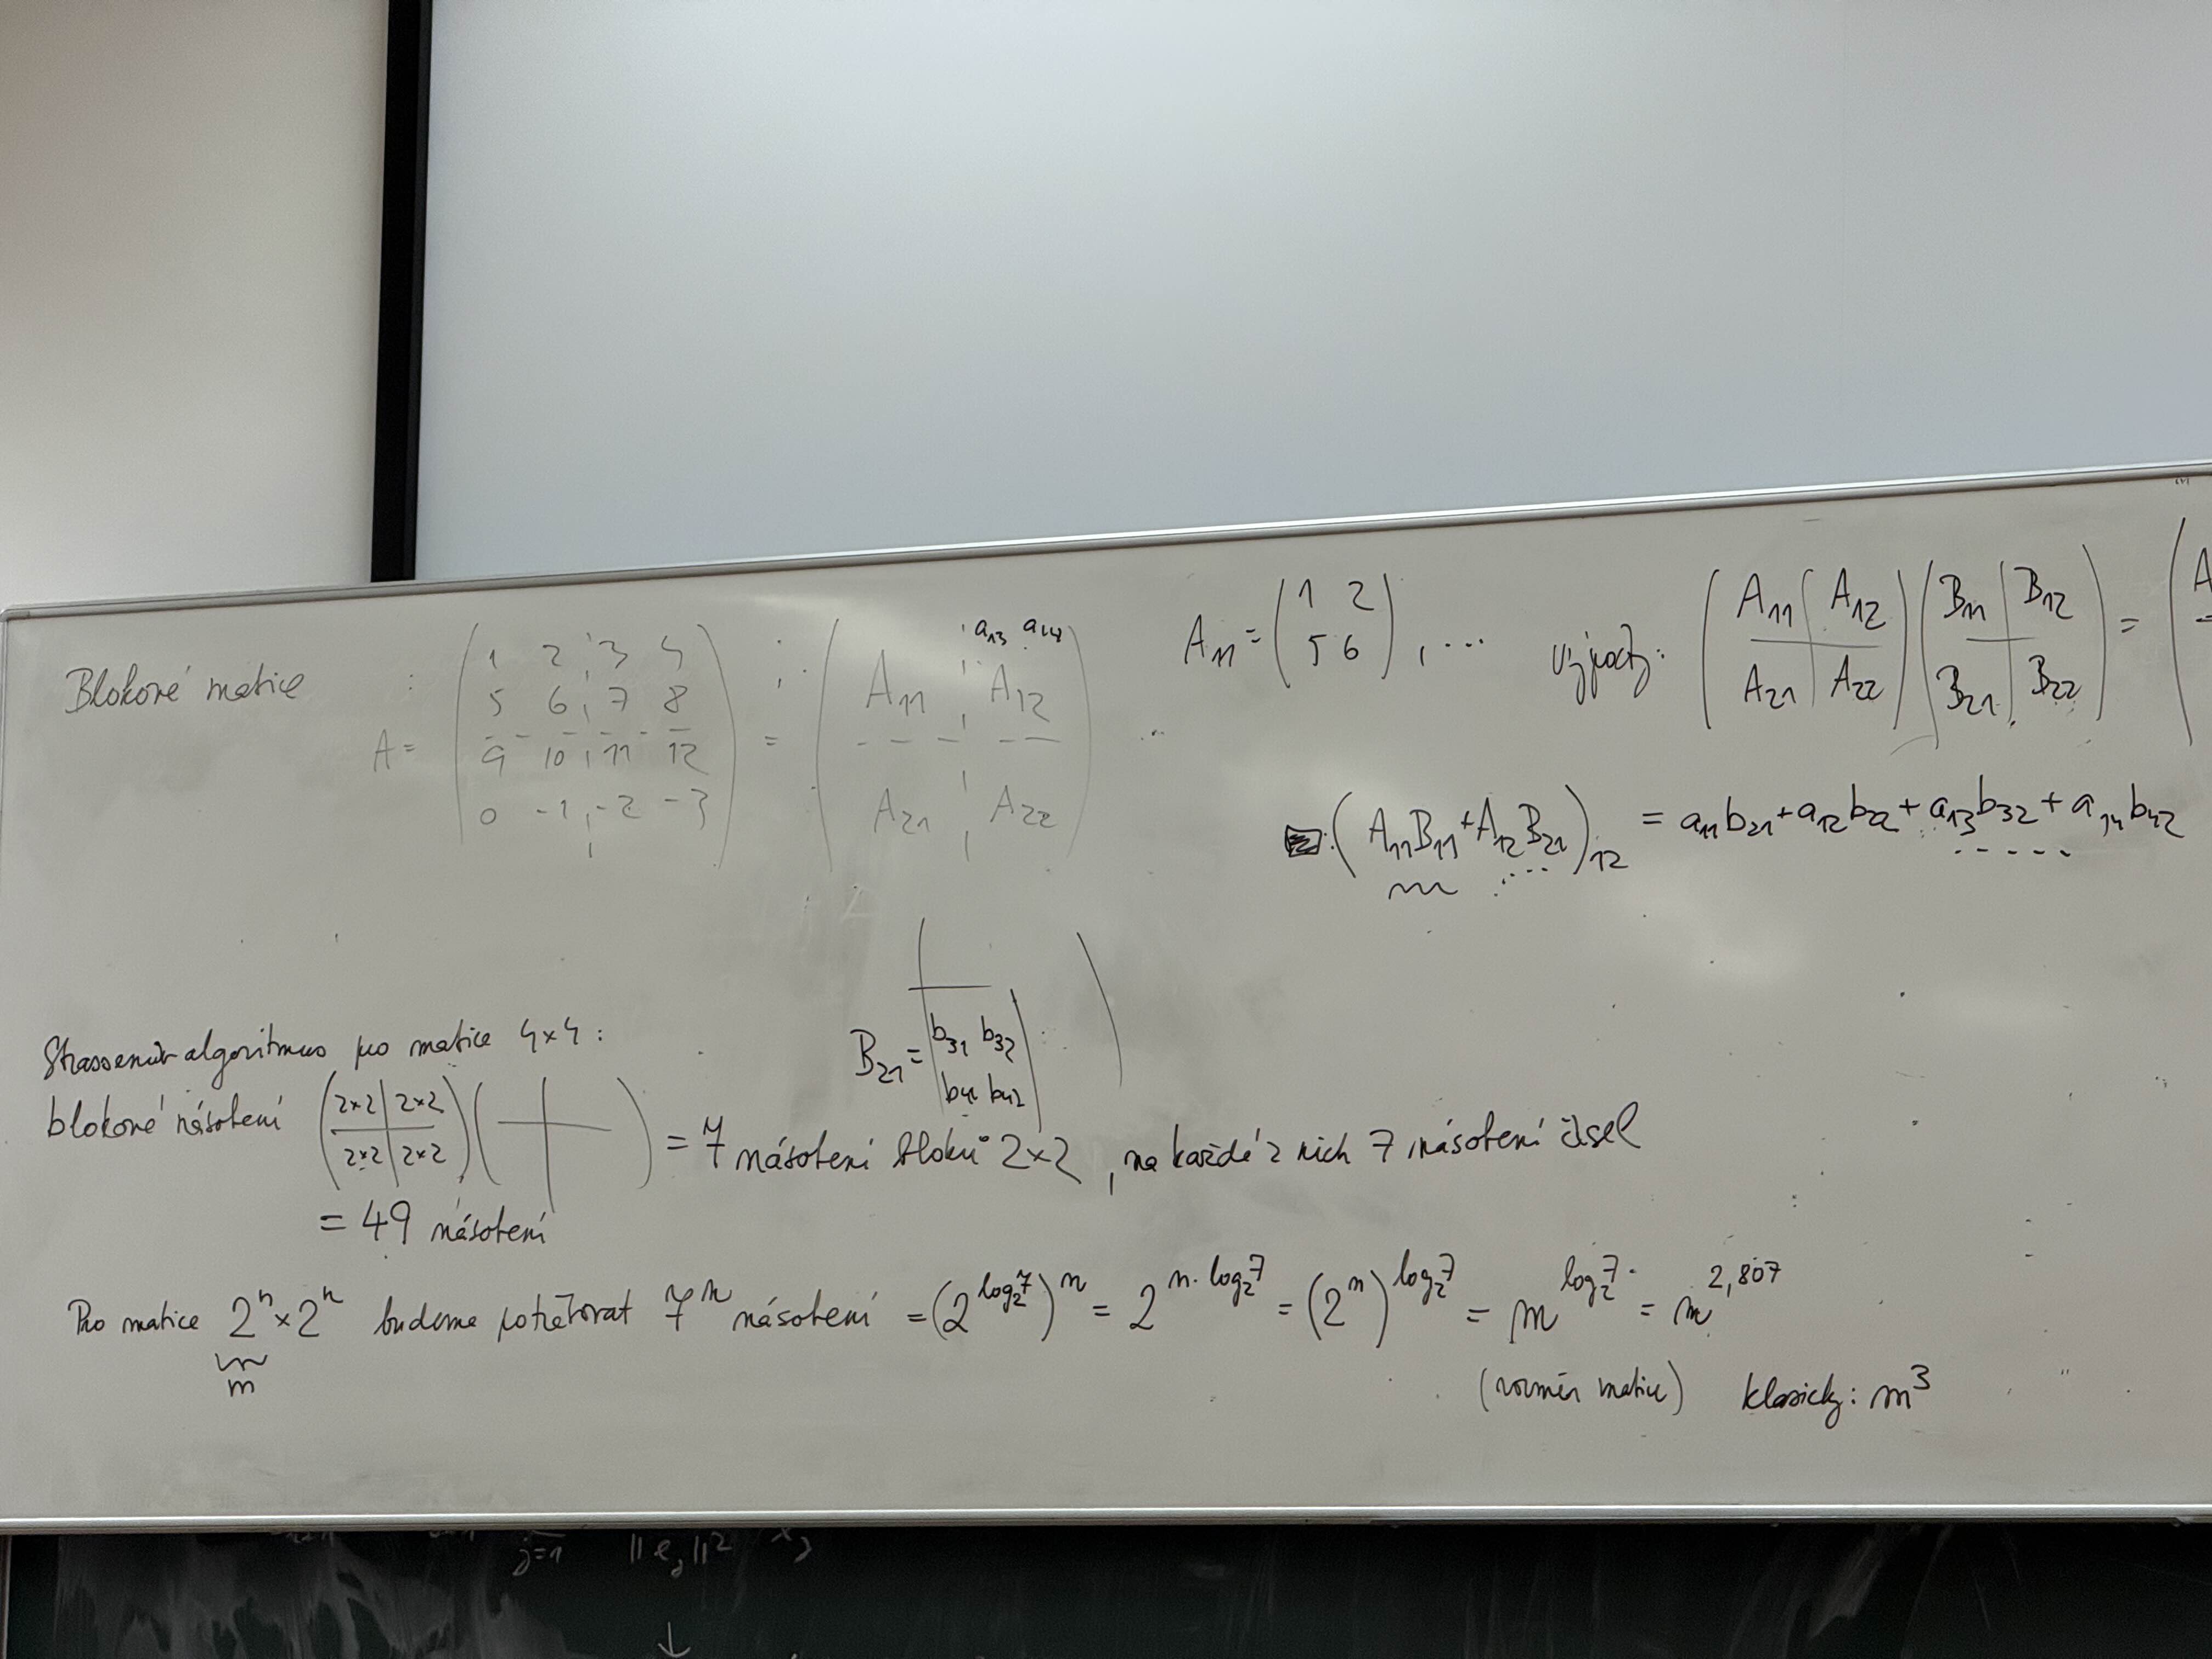 Blokové matice : A = ( 1 2 ¦ 3 4 ; 5 6 ¦ 7 8 ; 9 10 ¦ 11 12 ; 0 -1 ¦ -2 -3 ) = ( A₁₁ ¦ A₁₂ ; A₂₁ ¦ A₂₂ ) ...
a₁₃ a₁₄
A₁₁ = ( 1 2 ; 5 6 ) , ... výpočty: ( A₁₁ | A₁₂ ; A₂₁ | A₂₂ ) ( B₁₁ | B₁₂ ; B₂₁ | B₂₂ ) = ( A
( A₁₁B₁₁ + A₁₂B₂₁ )₁₂ = a₁₁b₂₁ + a₁₂b₂₂ + a₁₃b₃₂ + a₁₄b₄₂
B₂₁ = | b₃₁ b₃₂ ; b₄₁ b₄₂ |
Strassenův algoritmus pro matice 4×4 :
blokové násobení ( 2×2 | 2×2 ; 2×2 | 2×2 ) ( ) = 7 násobení bloků 2×2 , na každé z nich 7 násobení čísel
= 49 násobení
Pro matice 2ⁿ × 2ⁿ budeme potřebovat 7ⁿ násobení = (2^{log₂7})ⁿ = 2^{n·log₂7} = (2ⁿ)^{log₂7} = m^{log₂7} = m^{2,807}
m
(rozměr matice) klasicky: m³
j=1 ||e_j||² x_j
↓